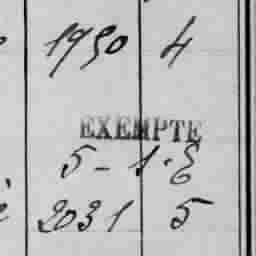 1950 4
EXEMPTE
5-1·E
2031 5